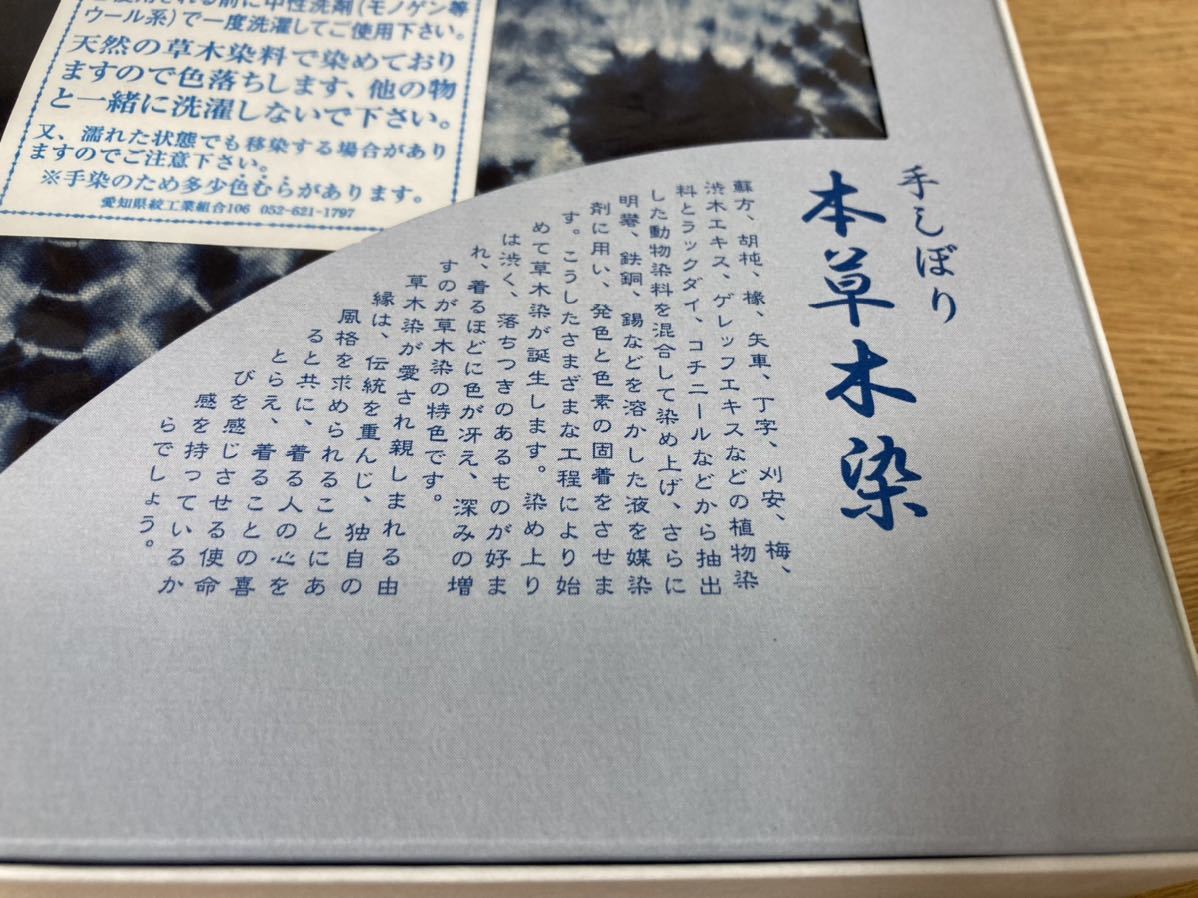 使用される前に中性洗剤(モノゲン等
ウール系)で一度洗濯してご使用下さい。
天然の草木染料で染めており
ますので色落ちします、他の物
と一緒に洗濯しないで下さい。
又、濡れた状態でも移染する場合があり
ますのでご注意下さい。
※手染のため多少色むらがあります。
愛知県絞工業組合106 052-621-1797
手しぼり
本草木染
蘇方、胡桃、橡、矢車、丁字、刈安、梅、
渋木エキス、ゲレップエキスなどの植物染
料とラックダイ、コチニールなどから抽出
した動物染料を混合して染め上げ、さらに
明礬、鉄銅、錫などを溶かした液を媒染
剤に用い、発色と色素の固着をさせま
す。こうしたさまざまな工程により始
めて草木染が誕生します。染め上り
は渋く、落ちつきのあるものが好ま
れ、着るほどに色が冴え、深みの増
すのが草木染の特色です。
草木染が愛され親しまれる由
縁は、伝統を重んじ、独自の
風格を求められることにあ
ると共に、着る人の心を
とらえ、着ることの喜
びを感じさせる使命
感を持っているか
らでしょう。